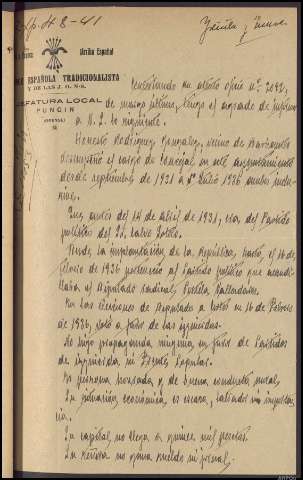 Exp. H 8-41
Treinta y nueve
¡Arriba España!
ESPAÑOLA TRADICIONALISTA
Y DE LAS J. O. N-S.
JEFATURA LOCAL
PUNGIN
(ORENSE)
Contestando su atento oficio nº 2092,
de marzo último, tengo el agrado de
a V. S. lo siguiente.
Honesto Rodríguez González, vecino de
desempeñó el cargo de Concejal en este ayuntamiento
desde septiembre de 1931 a Julio 1936 ambos inclu-
sive.
Que antes del 14 de abril de 1931, era del Partido
político del Sr. Calvo Sotelo.
Desde la implantación de la República, hasta el 16 de
febrero de 1936 perteneció al partido político que acaudi-
llaba el Diputado radical,
En las elecciones de Diputado a Cortes en 16 de Febrero
de 1936, votó a favor de las izquierdas.
No hizo propaganda ninguna en favor de Partidos
de izquierda ni Frente Popular.
Es persona honrada y de buena conducta moral,
Su situación económica es escasa,
Su capital no llega a quince mil pesetas.
Su señora no goza sueldo ni jornal,